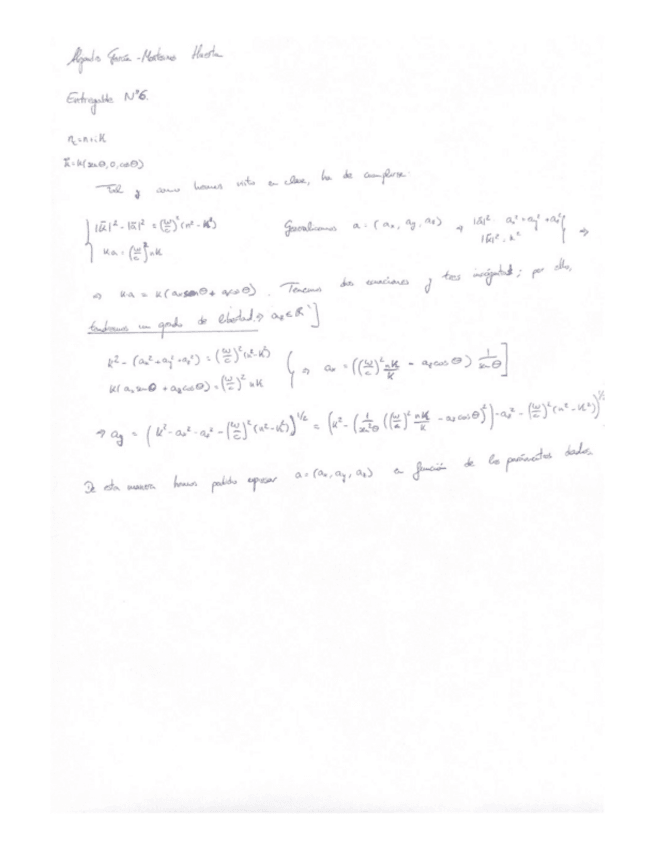 Entregable Nº6.
n_c = n + iK
k⃗ = k(senθ, 0, cosθ)
Tal y como hemos visto en clase, ha de cumplirse:
|k⃗|² - |a⃗|² = (ω/c)² (n² - K²) Generalizamos a = (a_x, a_y, a_z) ⇒ |a⃗|² = a_x² + a_y² + a_z² ⇒
k a = (ω/c)² nK |k⃗|² = k²
⇒ k a = k(a_x senθ + a_z cosθ). Tenemos dos ecuaciones y tres incógnitas; por ello,
tendremos un grado de libertad ⇒ a_z ∈ ℝ
k² - (a_x² + a_y² + a_z²) = (ω/c)² (n² - K²) ⇒ a_x = ((ω/c)² nK/k - a_z cosθ) 1/senθ
k(a_x senθ + a_z cosθ) = (ω/c)² nK
⇒ a_y = (k² - a_x² - a_z² - (ω/c)² (n² - K²))^1/2 = (k² - (1/sen²θ ((ω/c)² nK/k - a_z cosθ)²) - a_z² - (ω/c)² (n² - K²))^1/2
De esta manera hemos podido expresar a = (a_x, a_y, a_z) en función de los parámetros dados.